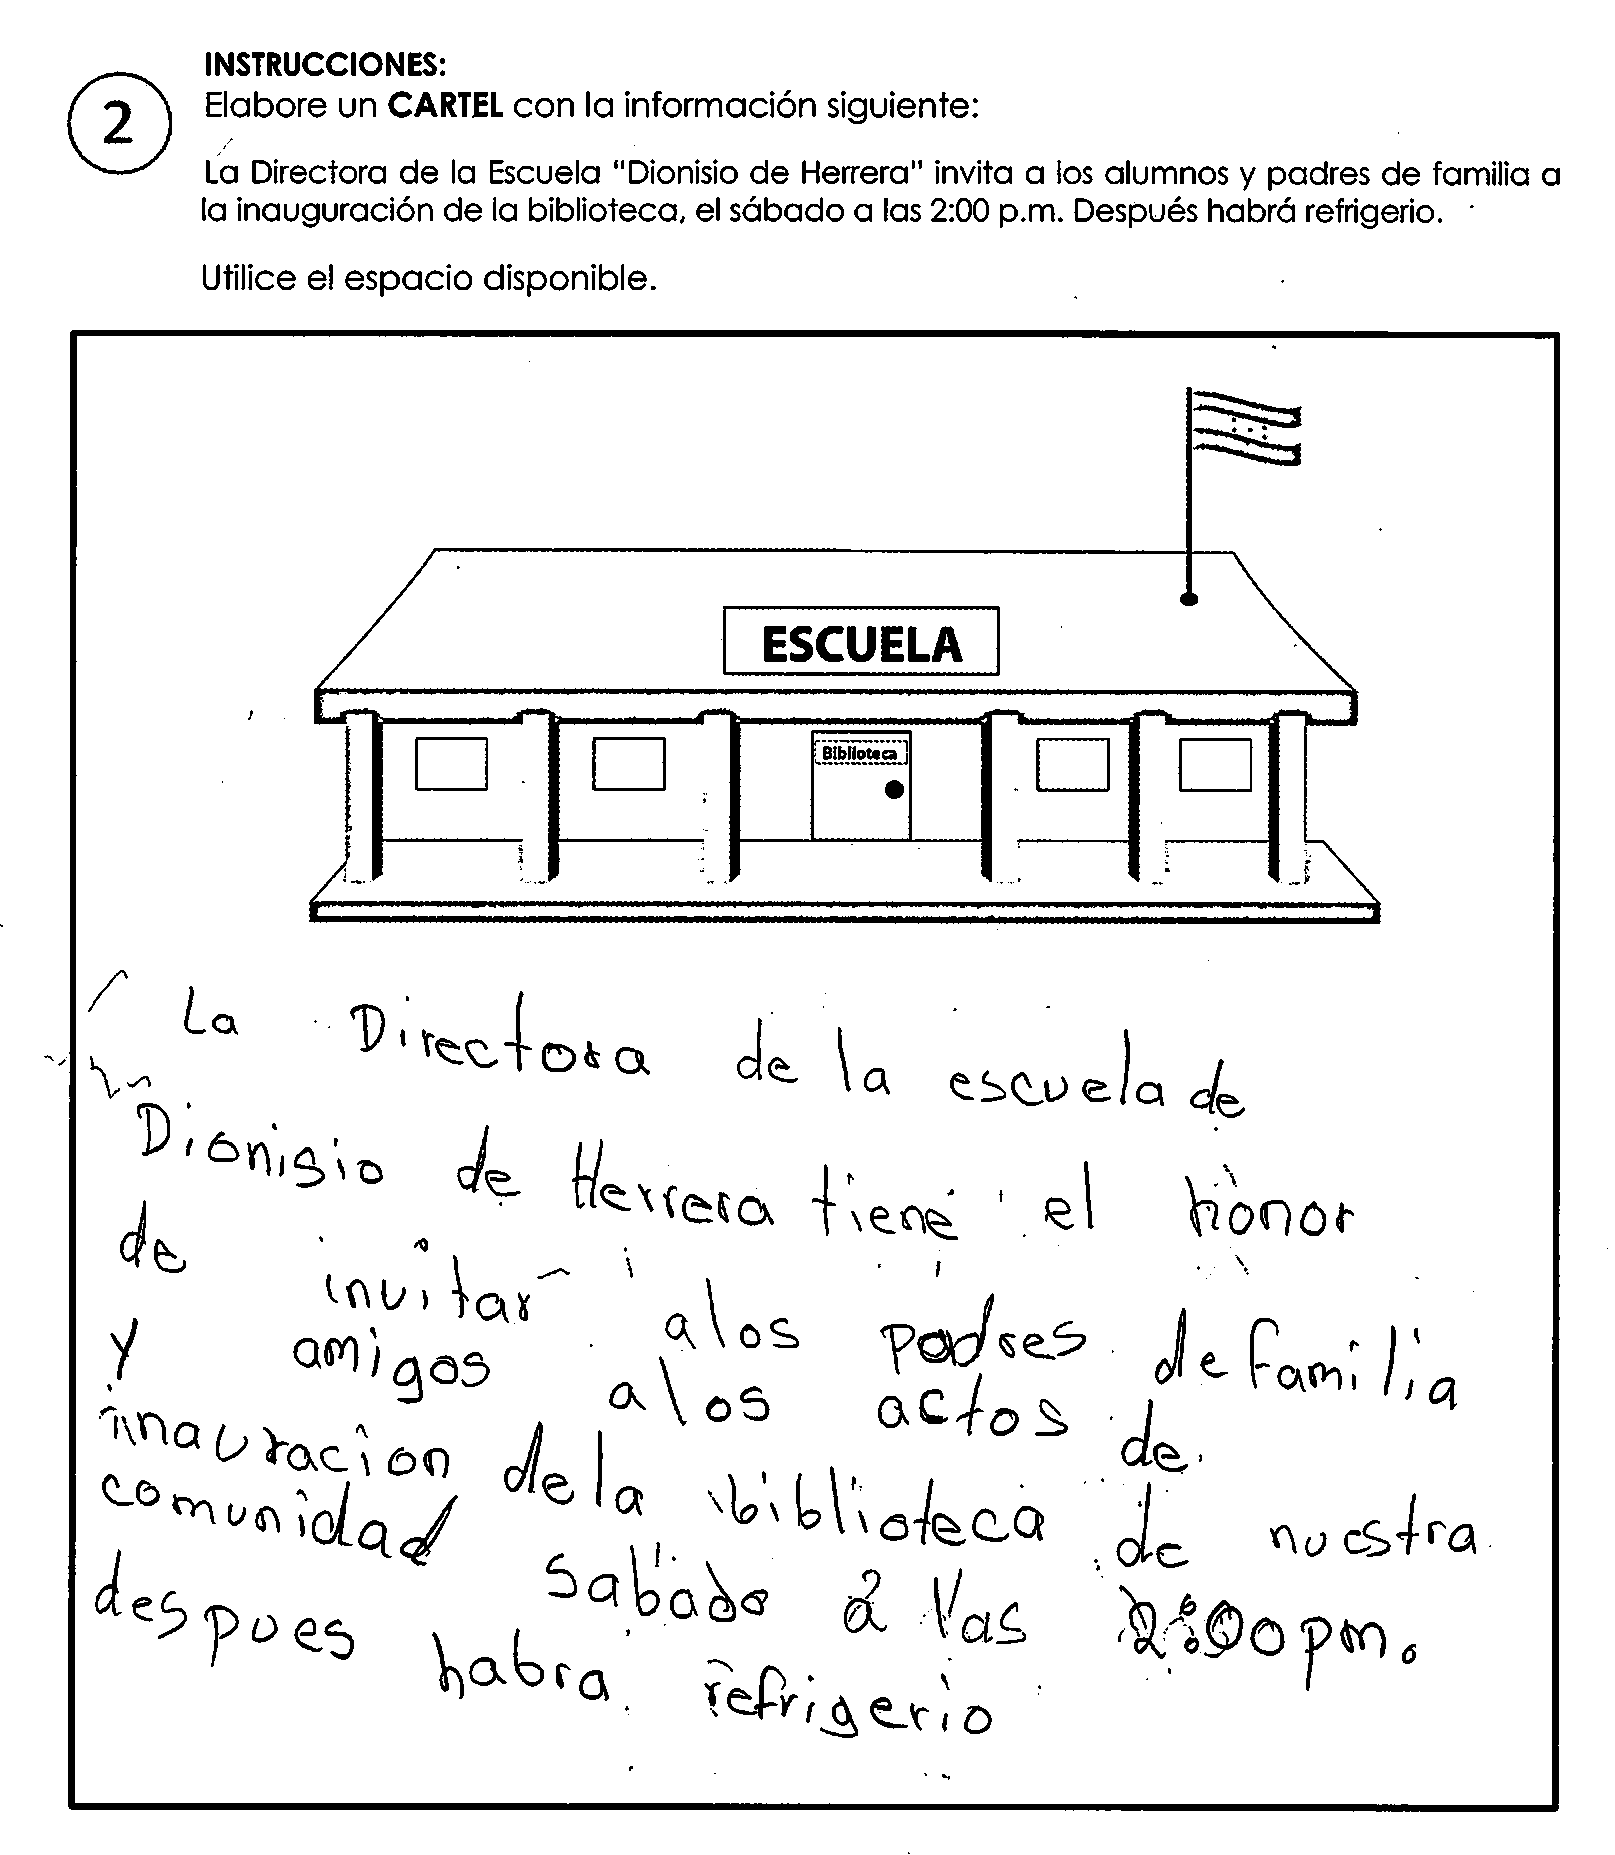 INSTRUCCIONES:
2
Elabore un CARTEL con la información siguiente:
La Directora de la Escuela "Dionisio de Herrera" invita a los alumnos y padres de familia a
la inauguración de la biblioteca, el sábado a las 2:00 p.m. Después habrá refrigerio.
Utilice el espacio disponible.
ESCUELA
Biblioteca
La Directora de la escuela de
Dionisio de Herrera tiene el honor
de invitar alos padres de familia
y amigos alos actos de
inauracion dela biblioteca de nuestra
comunidad sabado a las 2:00 pm.
despues habra refrigerio